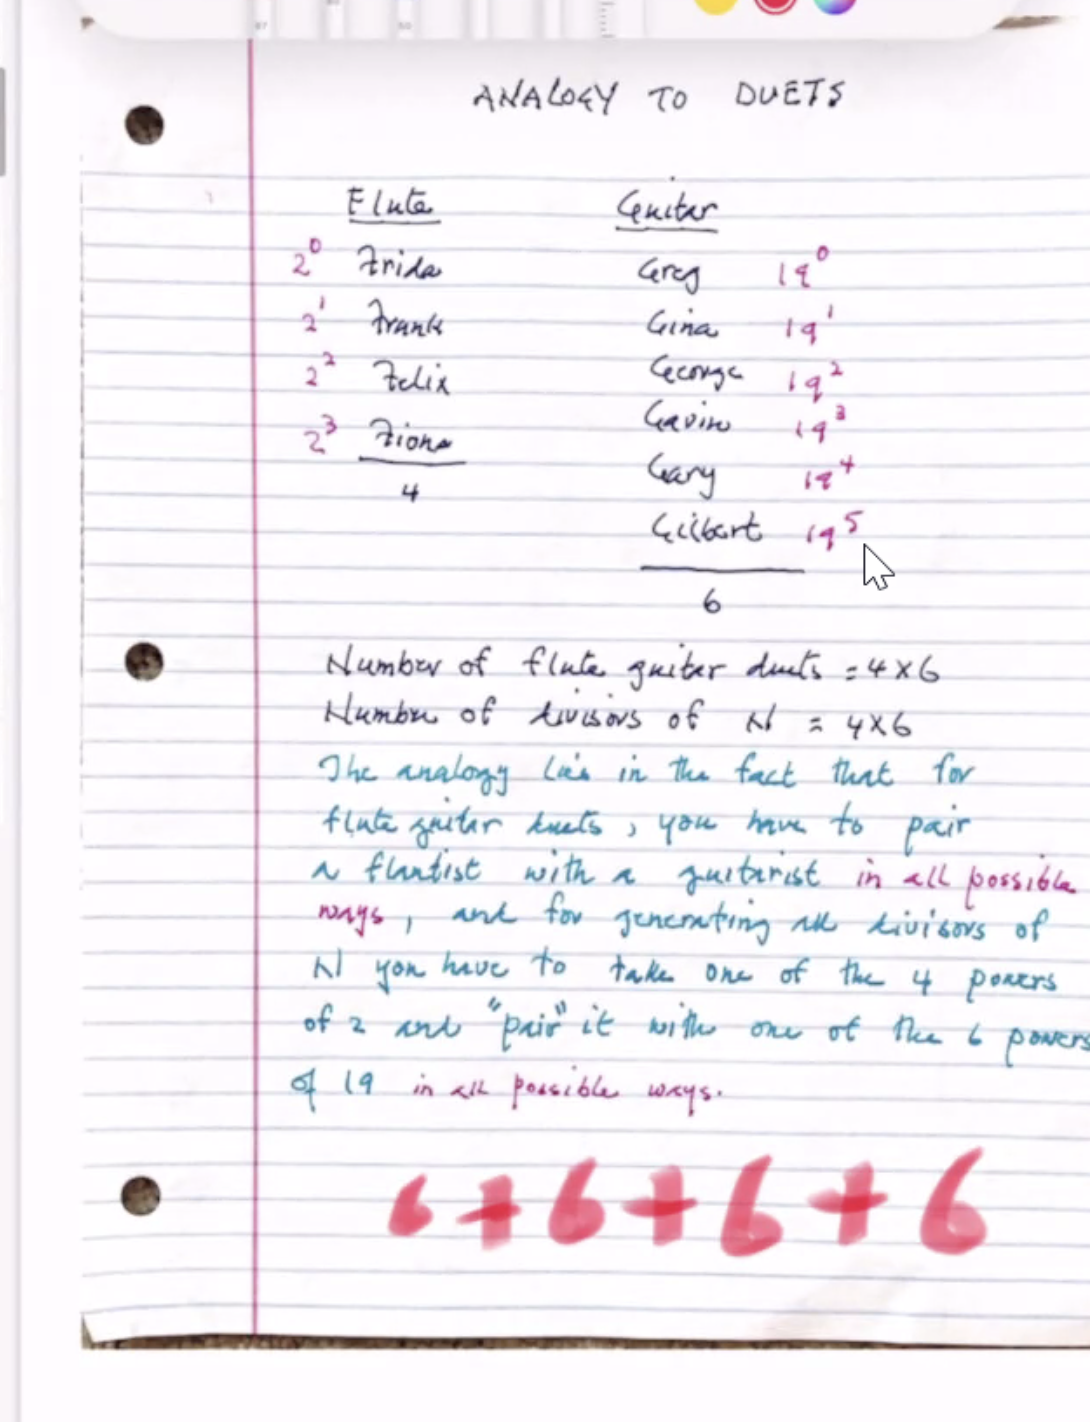 ANALOGY TO DUETS
Flute Guitar
2^0 Frida Greg 19^0
2^1 Frank Gina 19^1
2^2 Felix George 19^2
2^3 Fiona Gavin 19^3
4 Gary 19^4
Gilbert 19^5
6
Number of flute guitar duets = 4 × 6
Number of divisors of N = 4×6
The analogy lies in the fact that for
flute guitar duets, you have to pair
a flautist with a guitarist in all possible
ways, and for generating all divisors of
N you have to take one of the 4 powers
of 2 and "pair" it with one of the 6 powers
of 19 in all possible ways.
6 + 6 + 6 + 6